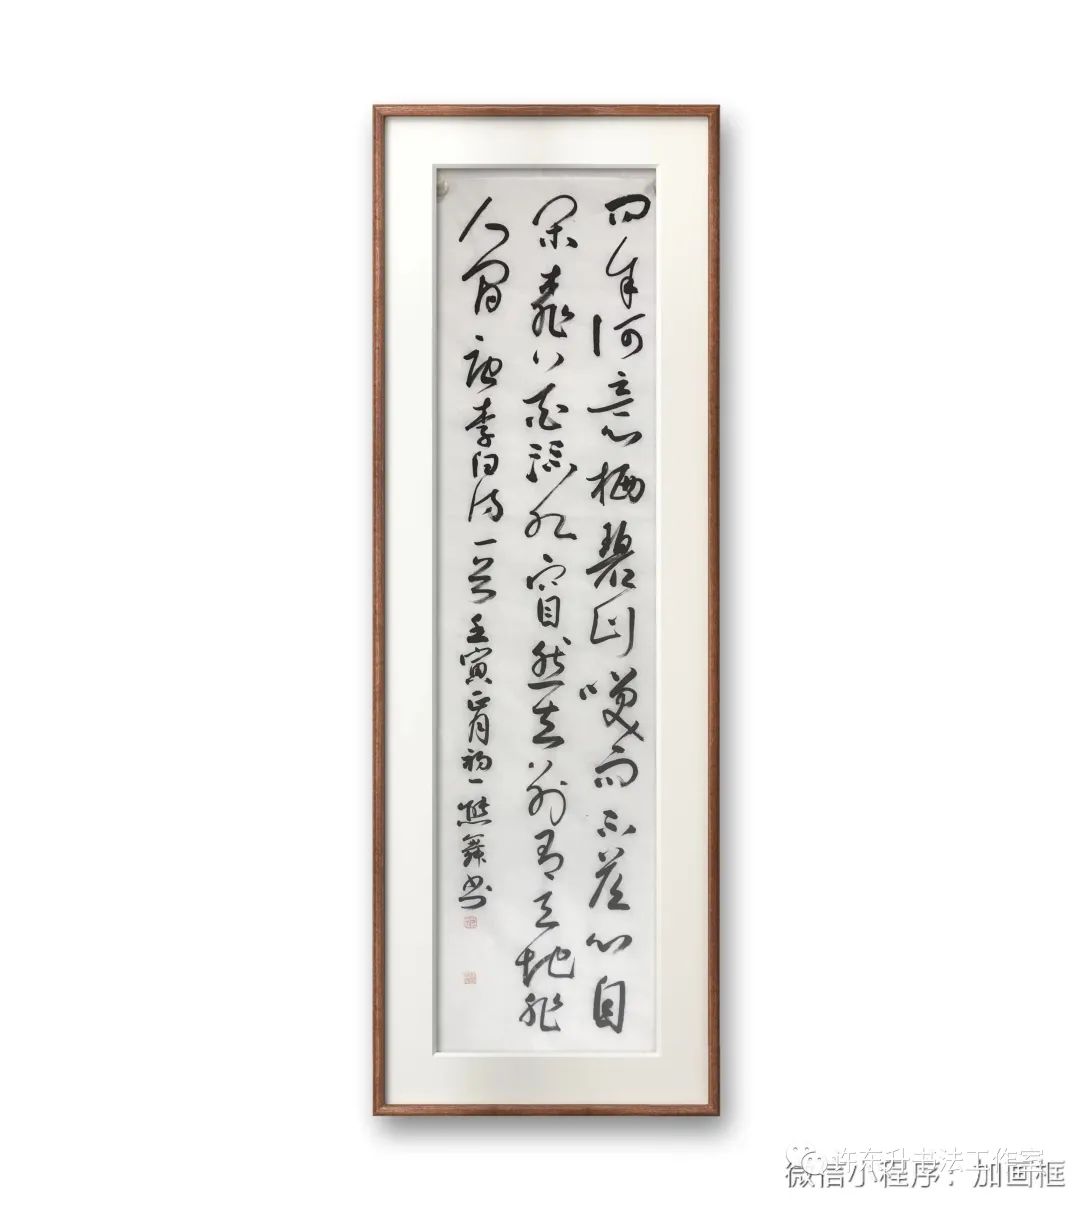 问余何意栖碧山笑而不答心自
闲桃花流水窅然去别有天地非
人间唐李白诗一首壬寅正月初一熊舞书
许东升书法工作室
微信小程序：加画框